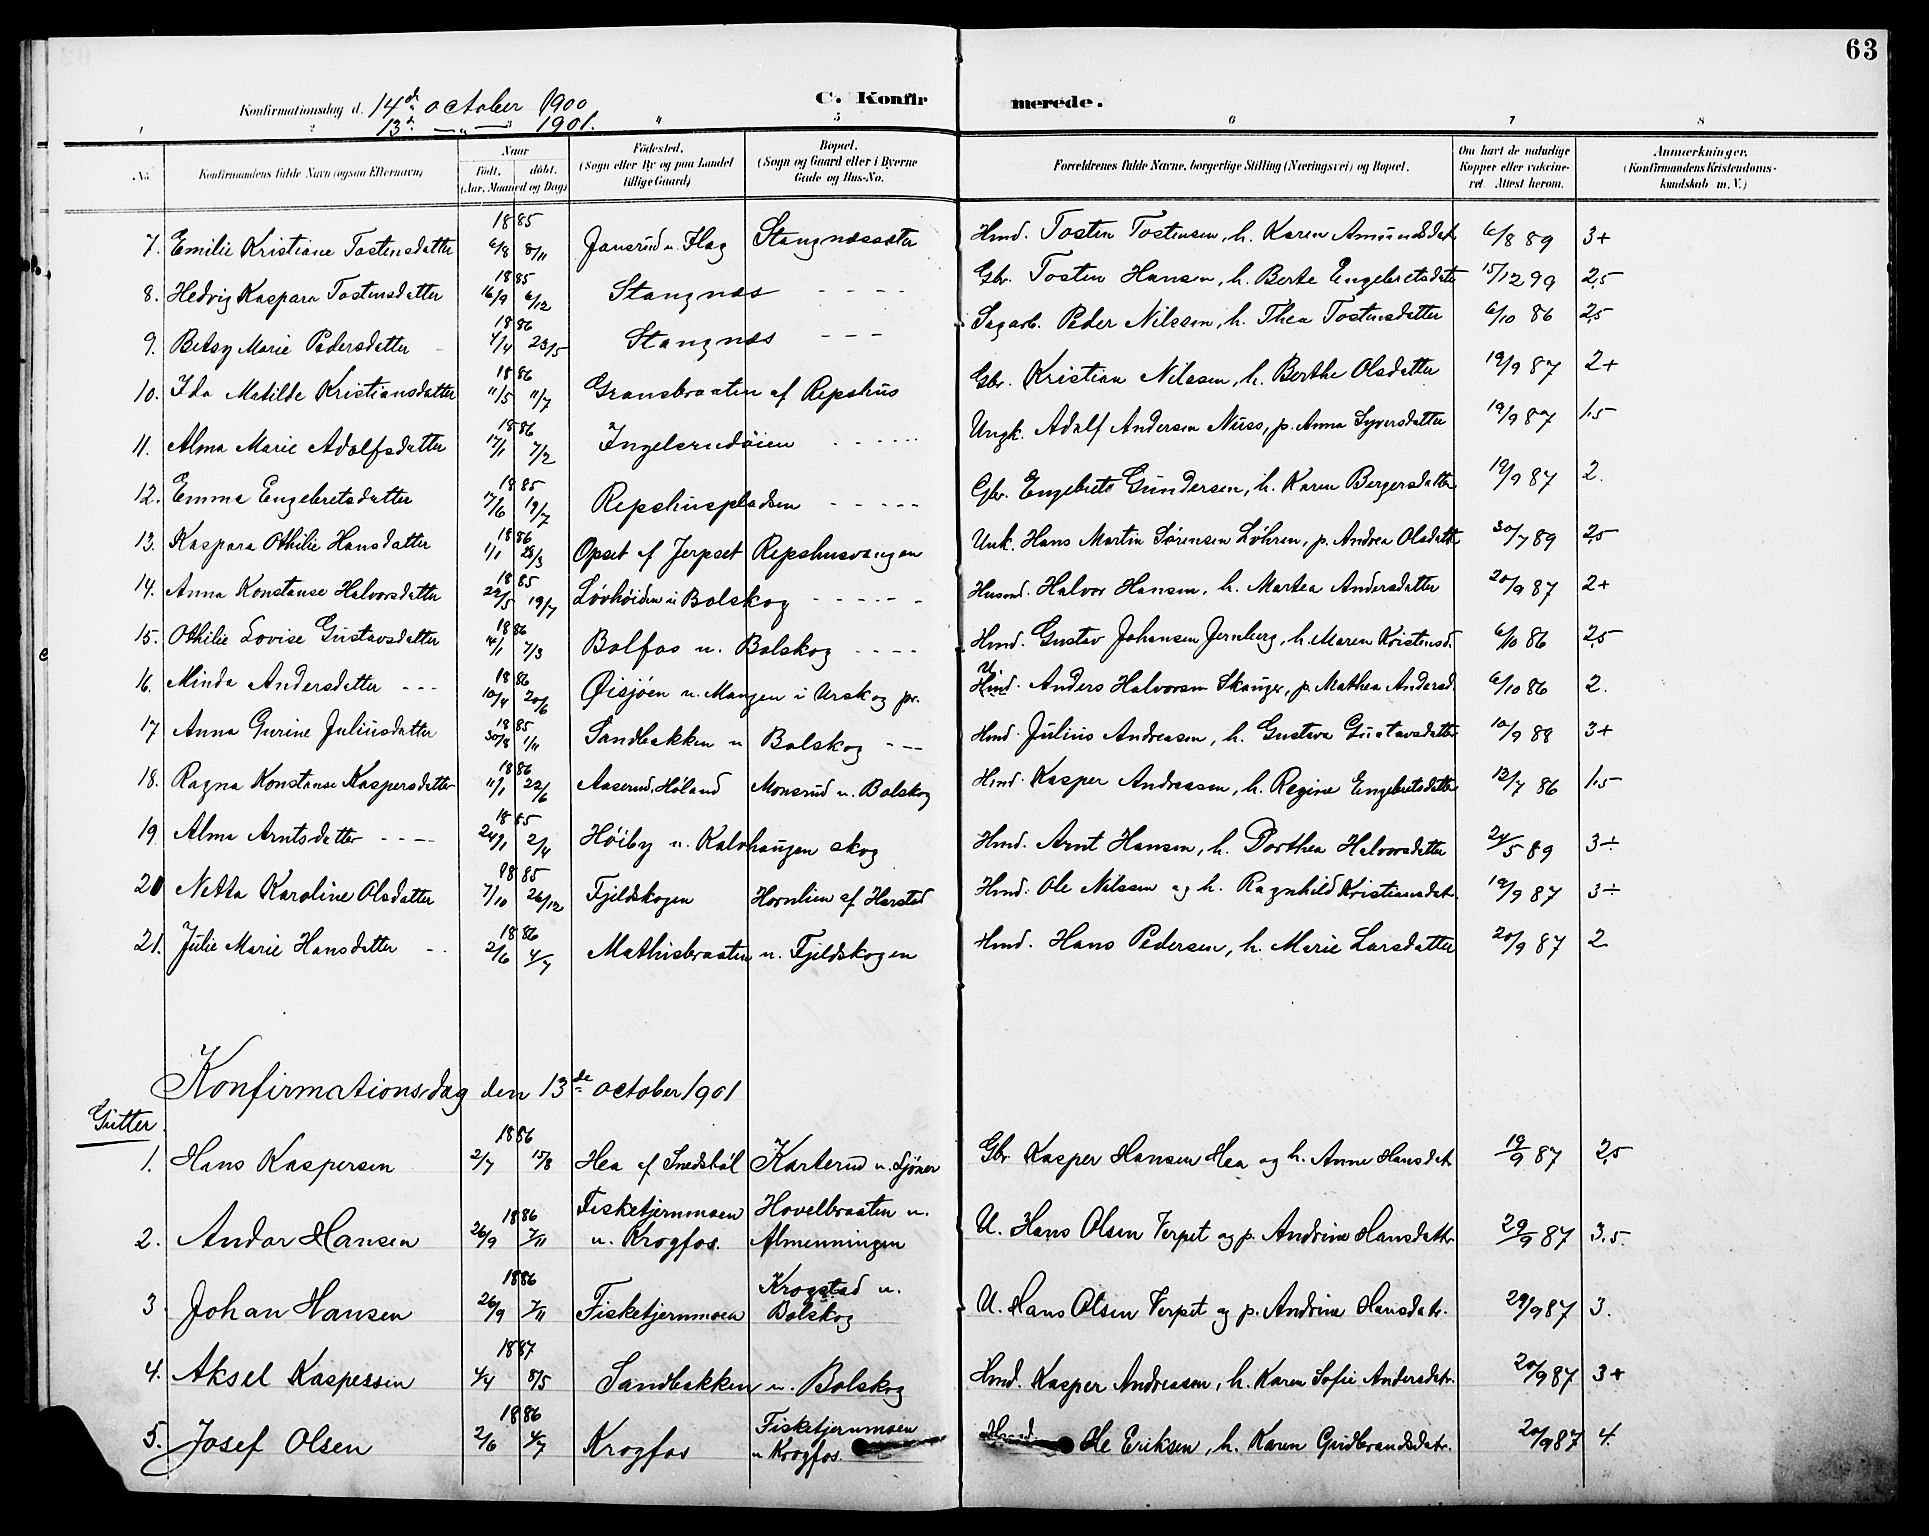 63
Konfirmationsdag d. 14de october 1900
13de — „ — 1901.
C. Konfirmerede.
1 2 4 5 6 7 8
No.
Konfirmandens fulde Navn (ogsaa Efternavn)
Naar
født. døbt.
(Aar, Maaned og Dag)
Fødested.
(Sogn eller By og paa Landet
tillige Gaard)
Bopæl.
(Sogn og Gaard eller i Byerne
Gade og Hus-No.
Forældrenes fulde Navne, borgerlige Stilling (Næringsvei) og Bopæl.
Om havt de naturlige
Kopper eller vakcine-
ret. Attest herom.
Anmærkninger.
(Konfirmandens Kristendoms-
kundskab m. V.)
7. Emilie Kristiane Tostensdatter 1885 6/8 8/11 Jansrud u. Flag Stangnæssæter Hmd. Tosten Tostensen, h. Karen Amundsdat 6/8 89 3+
8. Hedvig Kaspara Tostensdatter 1885 16/9 6/12 Stangnæs - - - - Gbr. Tosten Hansen, h. Berte Engebretsdatr 15/12 99 2,5
9. Betsy Marie Pedersdatter 1886 4/4 23/5 Stangnæs - - - Sagarb. Peder Nilssen, h. Thea Tostensdatter 6/10 86 2,5
10. Ida Matilde Kristiansdatter 1886 11/5 11/7 Gransbraaten af Repshus Gbr. Kristian Nilssen, h. Berthe Olsdatter 19/9 87 2+
11. Alma Marie Adolfsdatter 1886 17/1 7/2 Ingelsrudøien - - - - - Ungk. Adolf Andersen Næss, p. Anna Syversdatter 19/9 87 1.5
12. Emma Engebretsdatter 1885 7/6 19/7 Repshuspladsen - - - - - Gbr. Engebret Gundersen, h. Karen Bergersdatter 19/9 87 2.
13. Kaspara Othilie Hansdatter 1886 1/1 28/3 Opset af Jerpset Repshusvangen Unk. Hans Martin Sørensen Løhren, p. Andrea Olsdatt 30/7 89 2,5
14. Anna Konstanse Halvorsdatter 1885 22/5 19/7 Løvhøiden u Bolskog - - - - - Husmd. Halvor Hansen, h. Martea Andersdatter 20/9 87 2+
15. Othilie Lovise Gustavsdatter 1886 4/1 7/3 Bolfos u. Bolskog - - - - Hmd. Gustav Johansen Jernberg, h. Maren Kristensd. 6/10 86 2,5
16. Minda Andersdatter - - - 1886 10/4 20/6 Øisjøen u. Mangen i Urskog pr. U. Hmd. Anders Halvorsen Skauger, p. Mathea Andersd. 6/10 86 2.
17 Anna Gurine Juliusdatter 1885 30/8 1/11 Sandbakken u Bolskog - - - Hmd. Julius Andreasen, h. Gustava Gustavsdatter 10/9 88 3+
18. Ragna Konstanse Kaspersdatter 1886 11/1 22/6 Aaserud, Høland Monsrud u. Bolskog Hmd. Kasper Andreasen, h. Regine Engebretsdatter 13/7 86 1.5
19. Alma Arntsdatter - - - - 1885 24/1 2/4 Høiby u. Kalvhaugen skog Hmd. Arnt Hansen, h. Dorthea Halvorsdatter 24/5 89 3÷
20 Netta Karoline Olsdatter 1885 7/10 26/12 Fjeldskogen Hornlien af Harstad Hmd. Ole Nilssen og h. Ragnhild Kristiansdatr. 19/9 87 3÷
21. Julie Marie Hansdatter - - 1886 2/6 4/7 Mathisbraaten u. Fjeldskogen Hmd. Hans Pedersen, h. Marie Larsdatter 20/9 87 2
Konfirmationsdag den 13de october 1901
Gutter.
1. Hans Kaspersen 1886 2/7 15/8 Hea af Snedsbøl Karterud u. Sjøner Gbr Kasper Hansen Hea og h. Anne Hansdatr 19/9 87 2,5
2. Andor Hansen 1886 26/9 7/11 Fisketjernmoen u. Krogfos. Hovelbraaten u. Almenningen U. Hans Olsen Verpet og p. Andrine Hansdattr 29/9 87 3.5.
3 Johan Hansen 1886 26/9 7/11 Fisketjernmoen Krogstad u. Bolskog U. Hans Olsen Verpet og p. Andrine Hansdatr. 29/9 87 3.
4. Aksel Kaspersen 1887 4/4 8/5 Sandbakken u. Bolskog Hmd. Kasper Andreasen, h. Karen Sofie Andersdatr. 20/9 87 3+
5. Josef Olsen 1886 2/6 4/7 Krogfos Fisketjernmoen u Krogfos. Hmd. Ole Eriksen, h. Karen Gudbrandsdatr. 20/9 87 4.